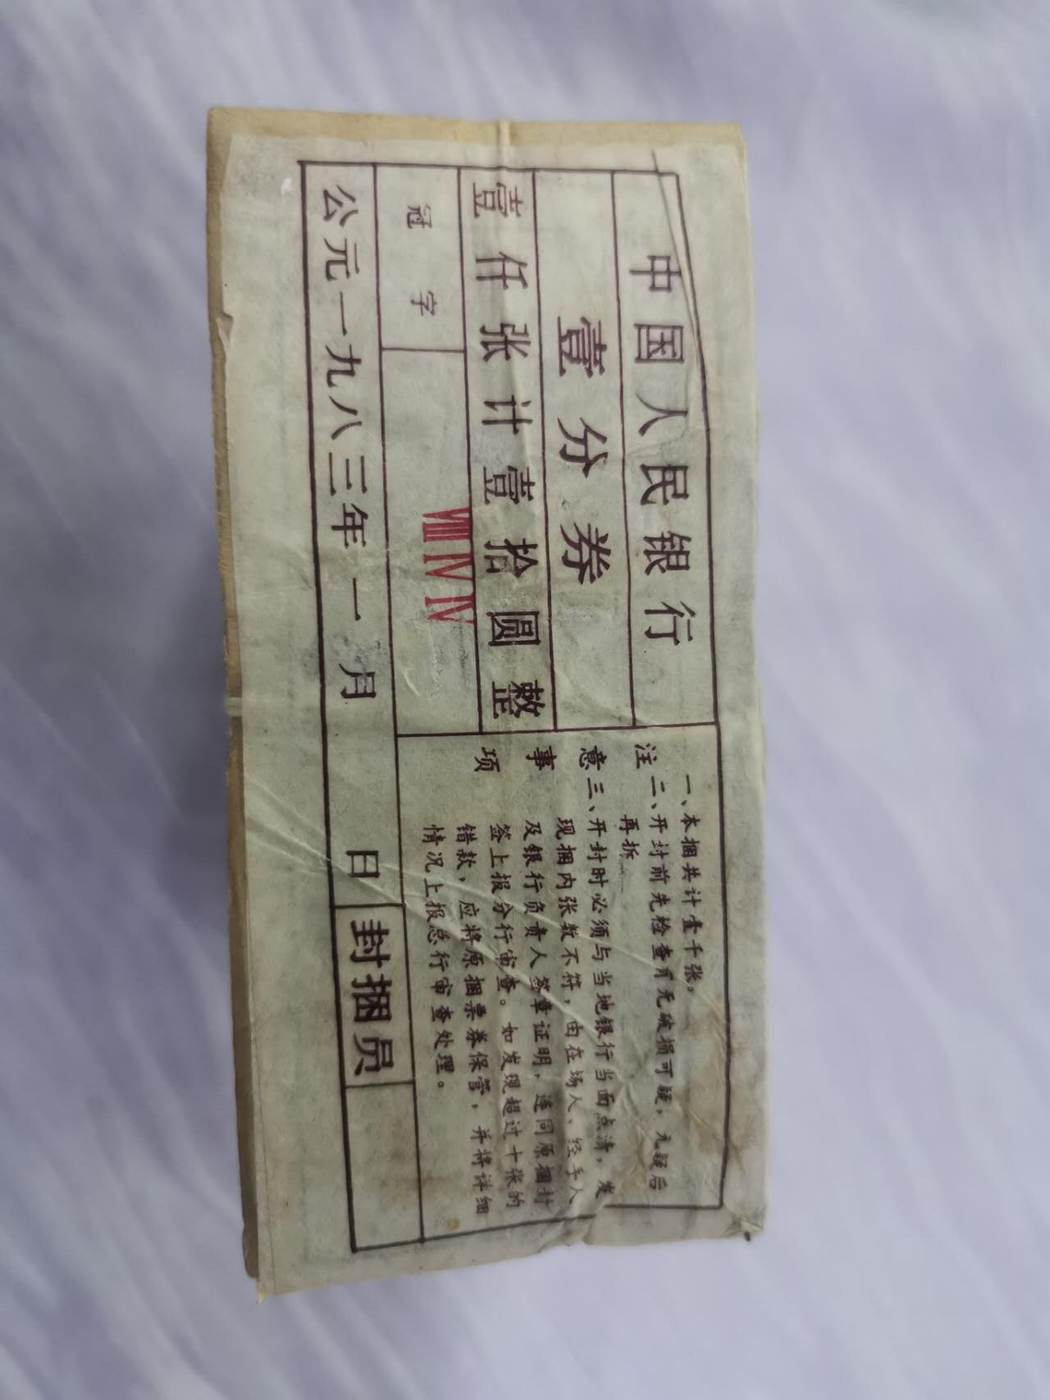 中国人民银行
壹分券
壹仟张计壹拾圆整
冠字
VIII IV IV
公元一九八三年一月 日
封捆员
注意事项
一、本捆共计壹千张，
二、开封前先检查有无破损可疑，无疑后
再拆
三、开封时必须与当地银行当面点清，发
现捆内张数不符，由在场人、经手人
及银行负责人签章证明，连同原捆封
签上报分行审查。如发现超过十张的
错款，应将原捆票券保管，并将详细
情况上报总行审查处理。